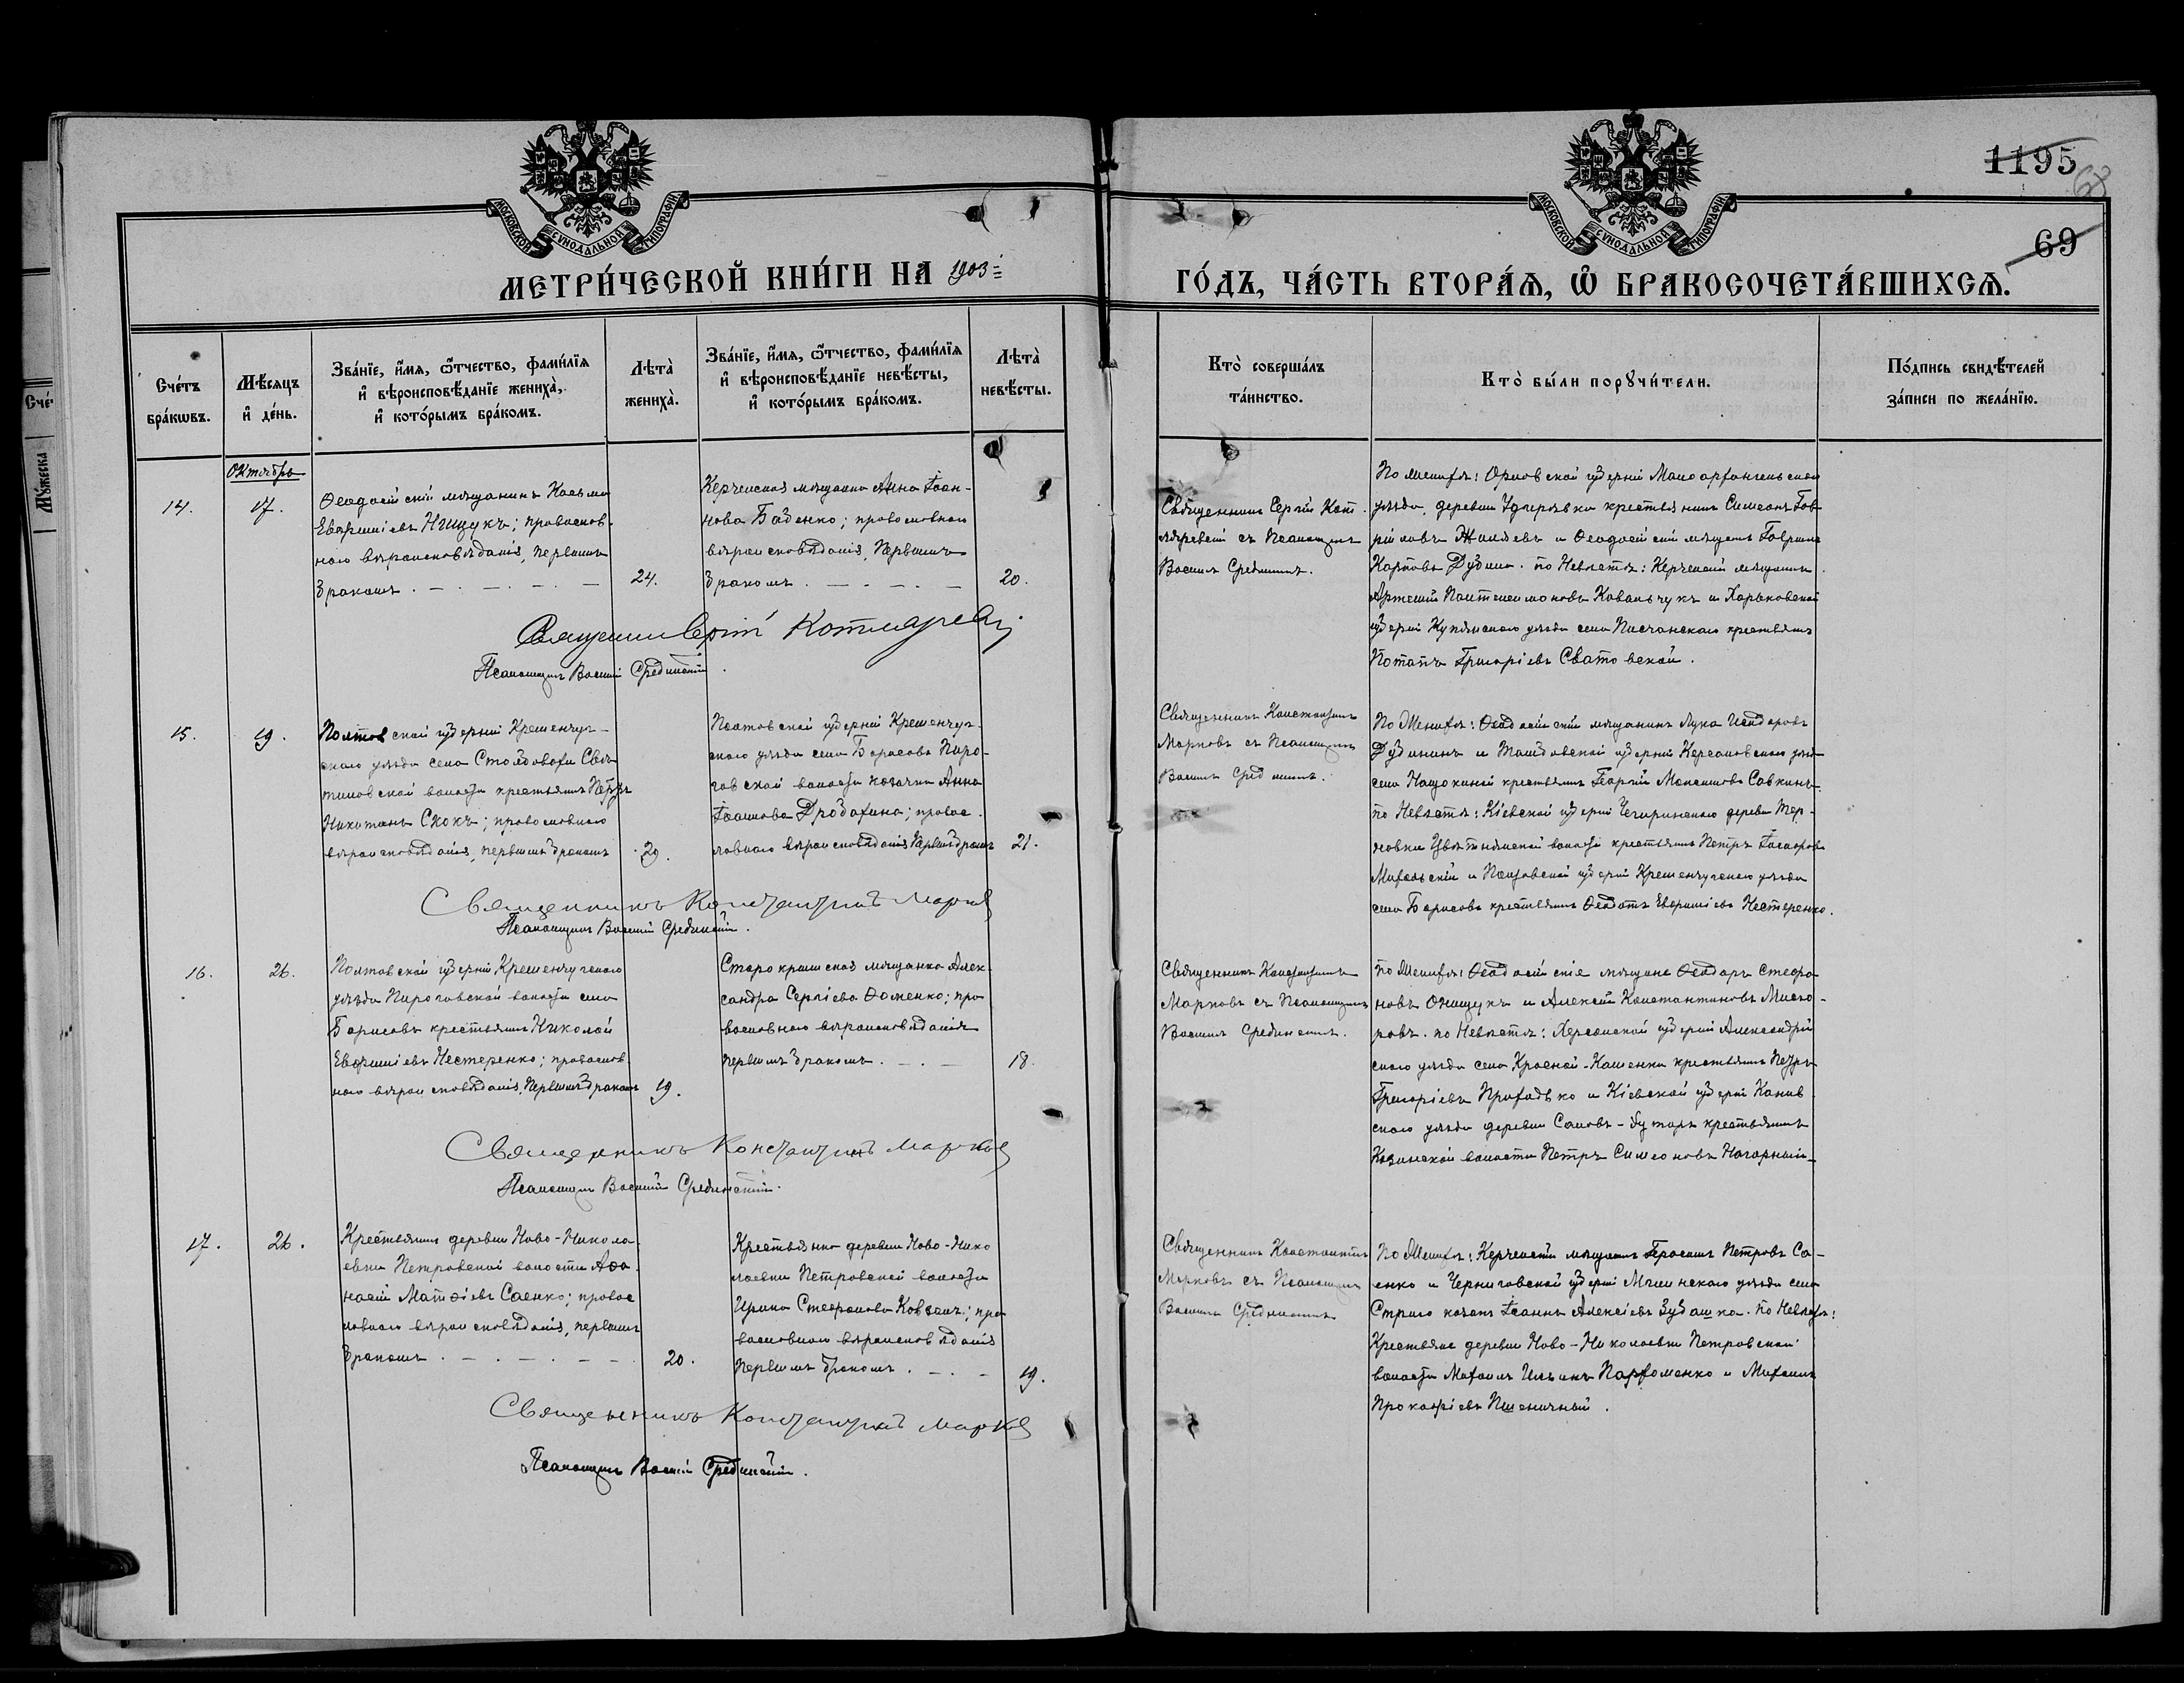 1195
68
69
МОСКОВСКОЙ СѴНОДАЛЬНОЙ ТИПОГРАФІИ
МОСКОВСКОЙ СѴНОДАЛЬНОЙ ТИПОГРАФІИ
МЕТРИ́ЧЕСКОЙ КНИ́ГИ НА 1903
ГО́ДЪ, ЧА́СТЬ ВТОРА́Я, Ѡ҆ БРАКОСОЧЕТА́ВШИХСЯ.
Сче́тъ
бра́кѡвъ.
Мѣ́сяцъ
и҆ де́нь.
Зва́нїе, и҆́мя, ѻ҆́тчество, фами́лїя
и҆ вѣроисповѣ́данїе жениха̀,
и҆ кото́рымъ бра́комъ.
Лѣта̀
жениха̀.
Зва́нїе, и҆́мя, ѻ҆́тчество, фами́лїя
и҆ вѣроисповѣ́данїе невѣ́сты,
и҆ кото́рымъ бра́комъ.
Лѣта̀
невѣ́сты.
Кто̀ соверша́лъ
та́инство.
Кто̀ бы́ли порꙋчи́тели.
По́дпись свидѣ́телей
за́писи по жела́нїю.
Октябрь
14.
17.
Ѳеодосійскій мѣщанинъ Косьма
Евфиміевъ Нищукъ; православ-
наго вѣроисповѣданія, первымъ
бракомъ
24.
Керченская мѣщанка Анна Іоан-
нова Баденко; православнаго
вѣроисповѣданія, первымъ
бракомъ
20.
Священникъ Сергій Кот-
ляревскій съ Псаломщикомъ
Василіемъ Срединскимъ.
По женихѣ: Орловской губерніи Малоархангельскаго
уѣзда, деревни крестьянинъ Симеонъ Гав-
ріиловъ Жиляевъ и Ѳеодосійскій мѣщанинъ Гавріилъ
Карповъ Дудинъ. по Невѣстѣ: Керченскій мѣщанинъ
Артемій Пантелеимоновъ Ковальчукъ и Харьковской
губерніи Купянскаго уѣзда села Песчанскаго крестьянинъ
Потапъ Григоріевъ Сватовской.
Священникъ Сергій Котляревскій
Псаломщикъ Василій Срединскій.
15.
19.
Полтавской губерніи Кременчуг-
скаго уѣзда села волости крестьянинъ Петръ
Никитинъ Скокъ; православнаго
вѣроисповѣданія, первымъ бракомъ
29.
Полтавской губерніи Кременчуг-
скаго уѣзда села Борисовъ Пиро-
говской волости козачка Анна
Іоаннова Дробахина; правос-
лавнаго вѣроисповѣданія первымъ бракомъ
21.
Священникъ Константинъ
Марковъ съ Псаломщикомъ
Василіемъ Срединскимъ.
По Женихѣ: Ѳеодосійскій мѣщанинъ Лука Исидоровъ
Дудинъ и Тамбовской губерніи Кирсановскаго уѣзда
села Нащокиной крестьянинъ Георгій Максимовъ Савкинъ.
по Невѣстѣ: Кіевской губерніи Чигиринскаго деревни Тер-
новки волости крестьянинъ Петръ
и Полтавской губерніи Кременчугскаго уѣзда
села Борисовъ крестьянинъ Ѳеодотъ Евфиміевъ Нестеренко.
Священникъ Константинъ Марковъ
Псаломщикъ Василій Срединскій.
16.
26.
Полтавской губерніи Кременчугскаго
уѣзда Пироговской волости села
Борисовъ крестьянинъ Николай
Евфиміевъ Нестеренко; православ-
наго вѣроисповѣданія, первымъ бракомъ
19.
Старокрымская мѣщанка Алек-
сандра Сергіева Фоменко; пра-
вославнаго вѣроисповѣданія
первымъ бракомъ.
18.
Священникъ Константинъ
Марковъ съ Псаломщикомъ
Василіемъ Срединскимъ.
по Женихѣ: Ѳеодосійскіе мѣщане Ѳеодоръ Стефа-
новъ Онищукъ и Алексій Константиновъ
. по Невѣстѣ: Херсонской губерніи Александрій-
скаго уѣзда села Красной-Каменки крестьянинъ Петръ
Григоріевъ Приходько и Кіевской губерніи Канев-
скаго уѣзда деревни крестьянинъ
Козинской волости Петръ Симеоновъ Нагорный.
Священникъ Константинъ Марковъ
Псаломщикъ Василій Срединскій.
17.
26.
Крестьянинъ деревни Ново-Никола-
евки Петровской волости Аѳа-
насій Матѳіевъ Саенко; правос-
лавнаго вѣроисповѣданія, первымъ
бракомъ
20.
Крестьянка деревни Ново-Нико-
лаевки Петровской волости
Ирина Стефанова Ковзанъ; пра-
вославнаго вѣроисповѣданія
первымъ бракомъ.
19.
Священникъ Константинъ
Марковъ съ Псаломщикомъ
Василіемъ Срединскимъ
По Женихѣ: Керченскій мѣщанинъ Герасимъ Петровъ Са-
енко и Черниговской губерніи Мглинскаго уѣзда села
козакъ Іоаннъ Алексіевъ Зубашка. по Невѣстѣ:
Крестьяне деревни Ново-Николаевки Петровской
волости Михаилъ Ильинъ Парфоменко и Михаилъ
Прокофіевъ Пшеничный.
Священникъ Константинъ Марковъ
Псаломщикъ Василій Срединскій.